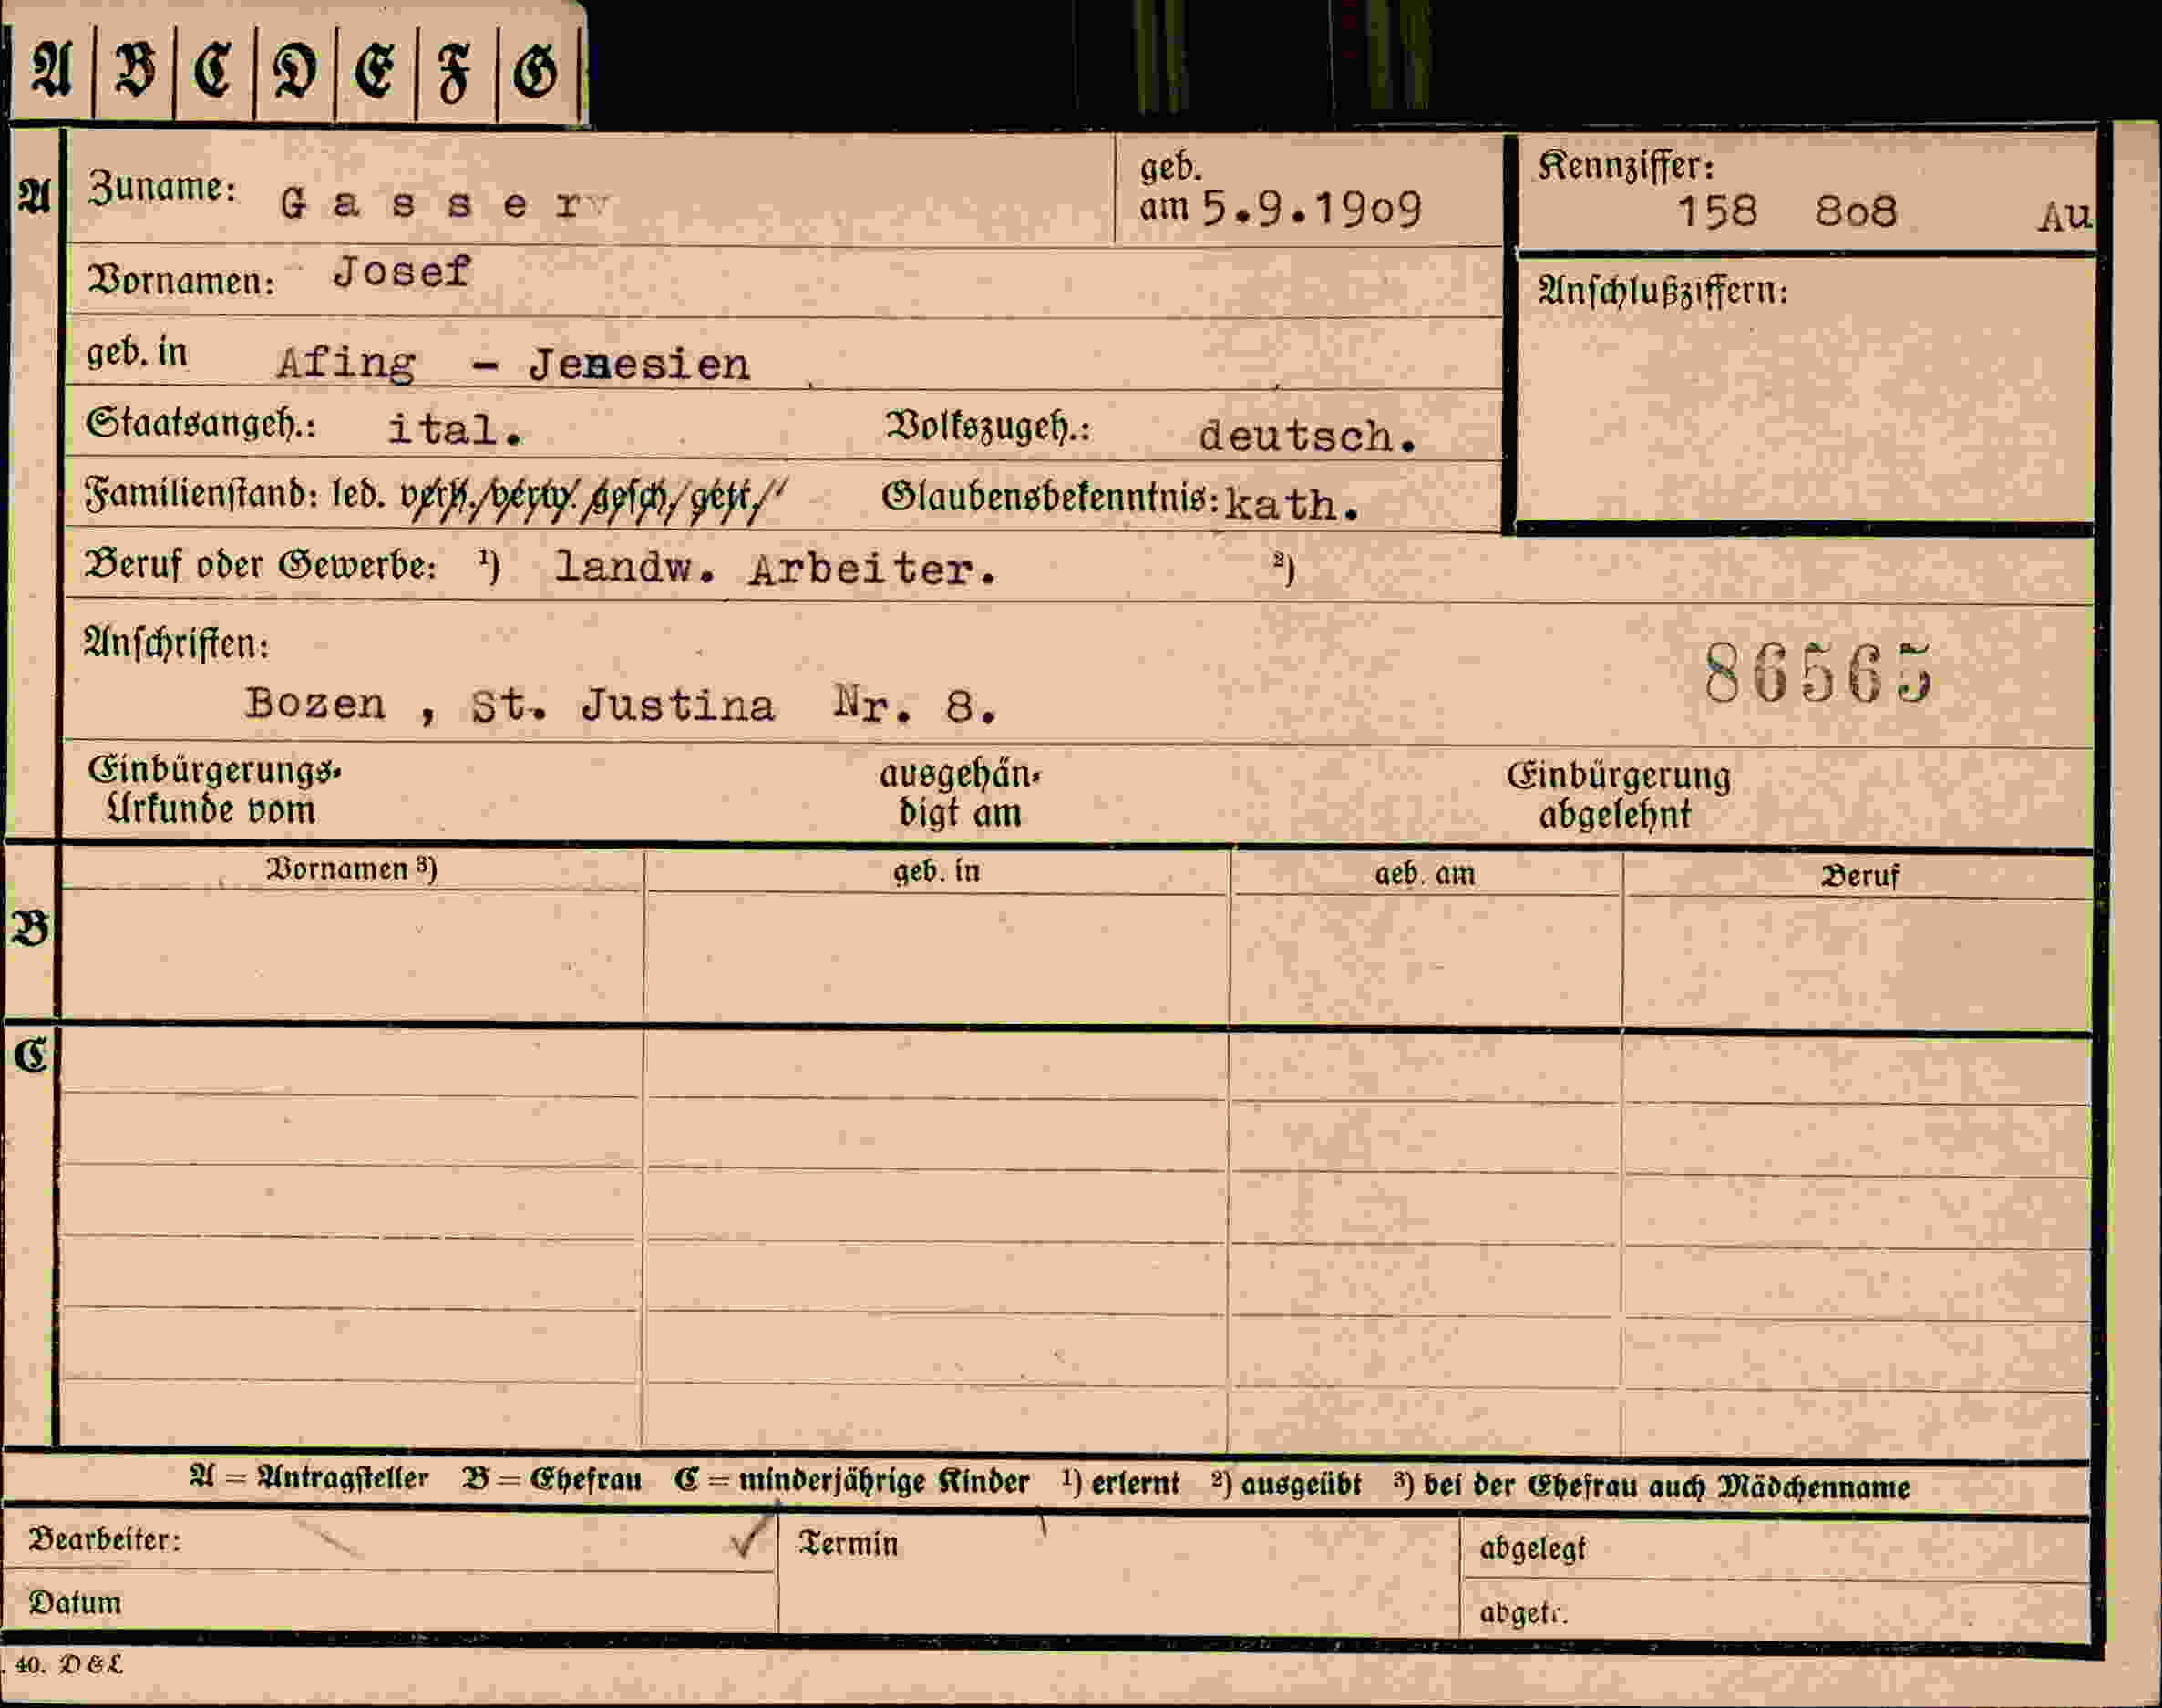 A B C D E F G
A Zuname: Gasser geb. am 5.9.1909 Kennziffer: 158 808 Au
Vornamen: Josef Anschlußziffern:
geb. in Afing - Jenesien
Staatsangeh.: ital. Volkszugeh.: deutsch.
Familienstand: led. verh. verw. gesch. getr. Glaubensbekenntnis: kath.
Beruf oder Gewerbe: 1) landw. Arbeiter. 2)
Anschriften: 86565
Bozen , St. Justina Nr. 8.
Einbürgerungs- ausgehän- Einbürgerung
Urkunde vom digt am abgelehnt
Vornamen 3) geb. in geb. am Beruf
B
C
A = Antragsteller B = Ehefrau C = minderjährige Kinder 1) erlernt 2) ausgeübt 3) bei der Ehefrau auch Mädchenname
Bearbeiter: Termin abgelegt
Datum abgetr.
. 40. D & L